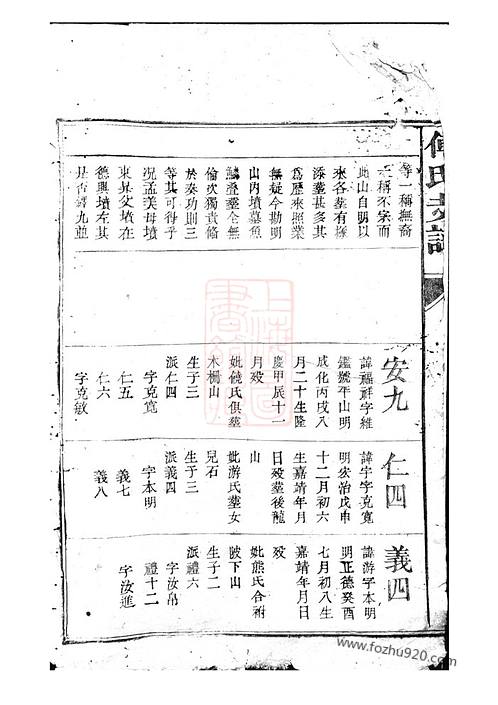 氏支譜
等一稱撫裔
一稱不宗而
此山自明以
來各塟有據
添塟甚多其
爲歷來照業
無疑今勘明
山內墳墓魚
鱗叠塟全無
倫次獨責脩
於奏功則三
等其可得乎
況孟美母墳
東昇父墳在
德興墳左其
是否經九並
安九
諱福祥字維
鑑號平山明
成化丙戌八
月二十生隆
慶甲辰十一
月殁
妣饒氏俱塟
木柵山
生子三
派仁四
字克寬
仁五
仁六
字克敏
仁四
諱宇字克寬
明弘治戊申
十二月初六
生嘉靖年月
日殁塟後龍
山
妣游氏塟女
兒石
生子三
派義四
字本明
義七
義八
義四
諱游字本明
明正德癸酉
七月初八生
嘉靖年月日
殁
妣熊氏合祔
陂下山
生子二
派禮六
字汝帛
禮十二
字汝進
www.fozhu920.com